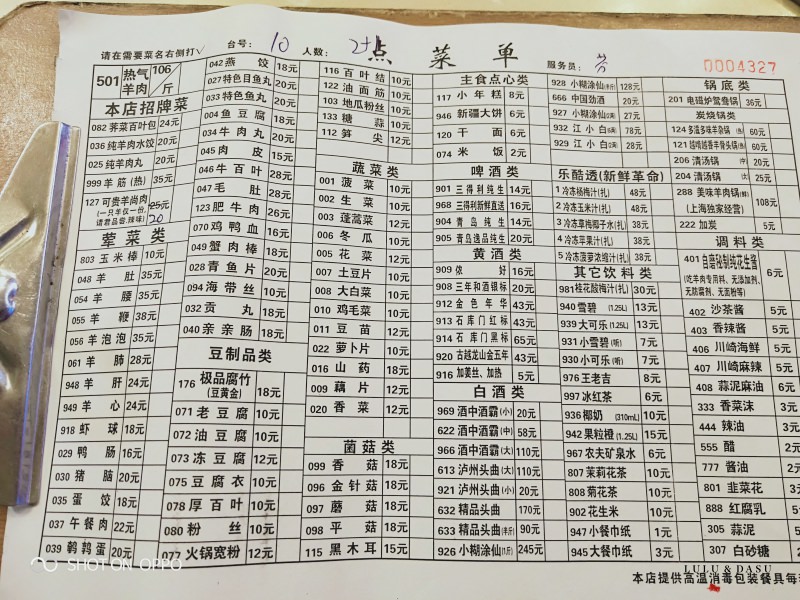 请在需要菜名右侧打√
台号: 10 人数:
点菜单
服务员:
0004327
501 热气羊肉 106/斤
本店招牌菜
082 荠菜百叶包 24元
036 纯羊肉水饺 20元
025 纯羊肉丸 20元
999 羊筋(热) 35元
127 可贵羊尚肉 25元 20
(一只羊仅一份,
请君品尝,辣味)
荤菜类
803 玉米棒 10元
048 羊肚 35元
054 羊腰 35元
055 羊鞭 38元
056 羊泡泡 35元
061 羊肺 28元
948 羊肝 24元
949 羊心 24元
918 虾球 18元
029 鸭肠 16元
030 猪脑 20元
035 蛋饺 18元
037 午餐肉 22元
039 鹌鹑蛋 20元
042 燕饺 18元
027 特色目鱼丸 20元
033 特色鱼丸 20元
004 鱼豆腐 18元
034 牛肉丸 20元
045 肉皮 15元
046 牛百叶 28元
047 毛肚 28元
123 肥牛肉 26元
070 鸡鸭血 16元
049 蟹肉棒 18元
028 青鱼片 20元
094 海带丝 10元
032 贡丸 18元
040 亲亲肠 18元
豆制品类
176 极品腐竹(豆黄金) 18元
071 老豆腐 10元
072 油豆腐 10元
073 冻豆腐 12元
075 豆腐衣 10元
078 厚百叶 10元
080 粉丝 10元
077 火锅宽粉 12元
116 百叶结 10元
122 油面筋 10元
103 地瓜粉丝 10元
133 糖蒜 10元
112 笋尖 12元
蔬菜类
001 菠菜 10元
002 生菜 10元
003 蓬蒿菜 12元
006 冬瓜 10元
005 花菜 12元
007 土豆片 10元
008 大白菜 10元
010 鸡毛菜 10元
011 豆苗 12元
022 萝卜片 10元
016 山药 18元
009 藕片 12元
020 香菜 12元
菌菇类
099 香菇 18元
096 金针菇 18元
097 蘑菇 18元
098 平菇 18元
115 黑木耳 15元
主食点心类
117 小年糕 8元
946 新疆大饼 6元
120 干面 6元
074 米饭 2元
啤酒类
901 三得利纯生 14元
968 三得利新鲜直送 16元
904 青岛纯生 14元
905 青岛逸品纯生 20元
黄酒类
909 侬好 16元
908 三年和酒银标 20元
912 金色年华 43元
913 石库门红标 43元
914 石库门黑标 65元
920 古越龙山金五年 43元
916 加姜丝、加热 5元
白酒类
969 酒中酒霸(小) 20元
622 酒中酒霸(中) 58元
966 酒中酒霸(大) 110元
613 泸州头曲(大) 110元
921 泸州头曲(小) 20元
632 精品头曲 170元
633 精品头曲(半斤) 90元
926 小糊涂仙(1斤) 245元
928 小糊涂仙(半斤) 128元
666 中国劲酒 20元
927 小糊涂仙(小) 27元
932 江小白(大) 78元
929 江小白(二两) 28元
乐酷透(新鲜革命)
1 冷冻杨梅汁(扎) 48元
2 冷冻玉米汁(扎) 48元
3 冷冻草莓椰子水(扎) 38元
4 冷冻苹果汁(扎) 38元
5 冷冻菠萝浓缩汁(扎) 38元
其它饮料类
981 桂花酸梅汁(扎) 30元
940 雪碧(1.25L) 13元
939 大可乐(1.25L) 13元
931 小雪碧(听) 7元
930 小可乐(听) 7元
976 王老吉 8元
997 冰红茶 6元
936 椰奶(310mL) 10元
942 果粒橙(1.25L) 15元
967 农夫矿泉水 6元
807 茉莉花茶 10元
808 菊花茶 10元
902 花生米 10元
947 小餐巾纸 1元
945 大餐巾纸 3元
锅底类
201 电磁炉鸳鸯锅 36元
炭烧锅类
124 多滋多味羊骨锅 60元
121 越喝越香羊骨头锅 60元
206 清汤锅 20元
204 清汤锅 25元
288 美味羊肉锅(鲜)
(上海独家经营) 108元
222 加炭 5元
调料类
401 自磨秘制纯花生酱 6元
(吃羊肉专用料、无添加剂、
无防腐剂、无面粉等)
402 沙茶酱 5元
403 香辣酱 5元
406 川崎海鲜 5元
407 川崎麻辣 5元
408 蒜泥麻油 6元
333 香菜沫 3元
444 辣油 3元
555 醋 2元
777 酱油 2元
801 韭菜花 3元
888 红腐乳 5元
305 蒜泥 5元
307 白砂糖 2元
本店提供高温消毒包装餐具每
SHOT ON OPPO
LULU & DASU